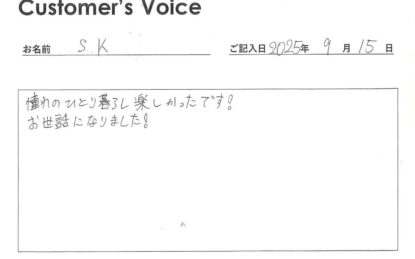 Customer's Voice
お名前 S.K ご記入日 2025年 9月 15日
憧れのひとり暮らし楽しかったです!
お世話になりました!